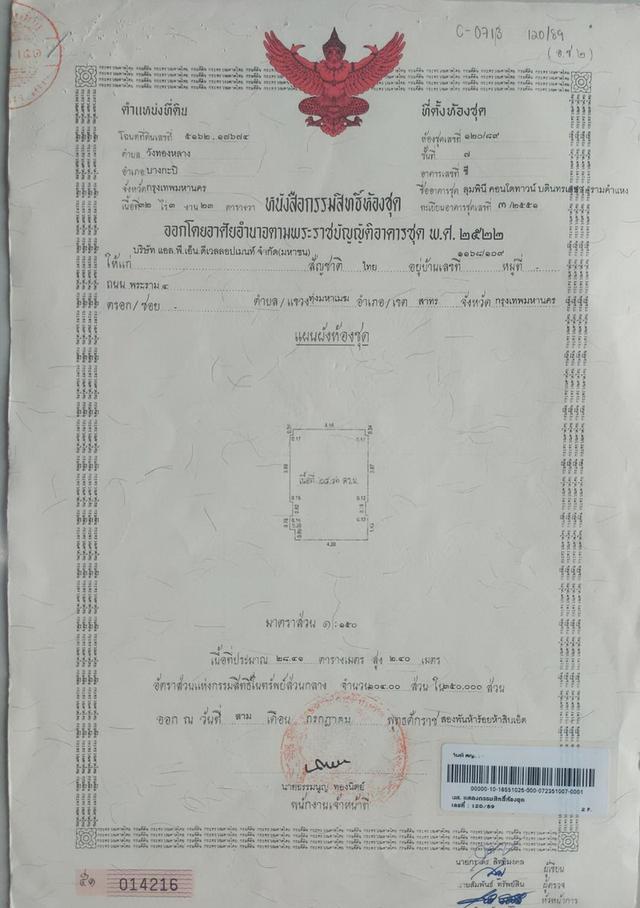 C-071B 120/89
(อ.ช ๒)
ตำแหน่งที่ดิน
ที่ตั้งห้องชุด
โฉนดที่ดินเลขที่ ๕๑๖๒,๑๗๖๗๔
ห้องชุดเลขที่ ๑๒๐/๘๙
ตำบล วังทองหลาง
ชั้นที่ ๗
อำเภอ บางกะปิ
อาคารเลขที่ ซี
จังหวัด กรุงเทพมหานคร
ชื่ออาคารชุด ลุมพินี คอนโดทาวน์ บดินทรเดชา-รามคำแหง
เนื้อที่ ไร่ ๓ งาน ๒๓ ตารางวา
ทะเบียนอาคารชุดเลขที่ ๓/๒๕๕๑
หนังสือกรรมสิทธิ์ห้องชุด
ออกโดยอาศัยอำนาจตามพระราชบัญญัติอาคารชุด พ.ศ. ๒๕๒๒
ให้แก่ บริษัท แอล.พี.เอ็น.ดีเวลลอปเมนท์ จำกัด(มหาชน) สัญชาติ ไทย อยู่บ้านเลขที่ ๑๑๖๘/๑๐๙ หมู่ที่ -
ถนน พระราม ๔
ตรอก/ซอย - ตำบล/แขวง ทุ่งมหาเมฆ อำเภอ/เขต สาทร จังหวัด กรุงเทพมหานคร
แผนผังห้องชุด
เนื้อที่ ตร.ม.
มาตราส่วน ๑:๑๕๐
เนื้อที่ประมาณ ๒๘.๔๑ ตารางเมตร สูง ๒.๔๐ เมตร
อัตราส่วนแห่งกรรมสิทธิ์ในทรัพย์ส่วนกลาง จำนวน ส่วน ใน ส่วน
ออก ณ วันที่ สาม เดือน กรกฎาคม พุทธศักราช สองพันห้าร้อยห้าสิบเอ็ด
พนักงานเจ้าหน้าที่
00000-10-16551025-000-072351007-0001
นส. แสดงกรรมสิทธิ์ห้องชุด
เลขที่ : 120/89
2 F.
ผู้เขียน
ผู้ตรวจ
หัวหน้าการ
014216